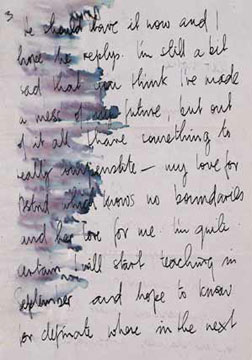 3
he should have it now and I
hope he replys. I'm still a bit
sad that you think I've made
a mess of my future, but out
of it all I have something to
really compensate – my love for
Astrid which knows no boundaries
and her love for me. I'm quite
certain I will start teaching in
September and hope to know
for definate where in the next